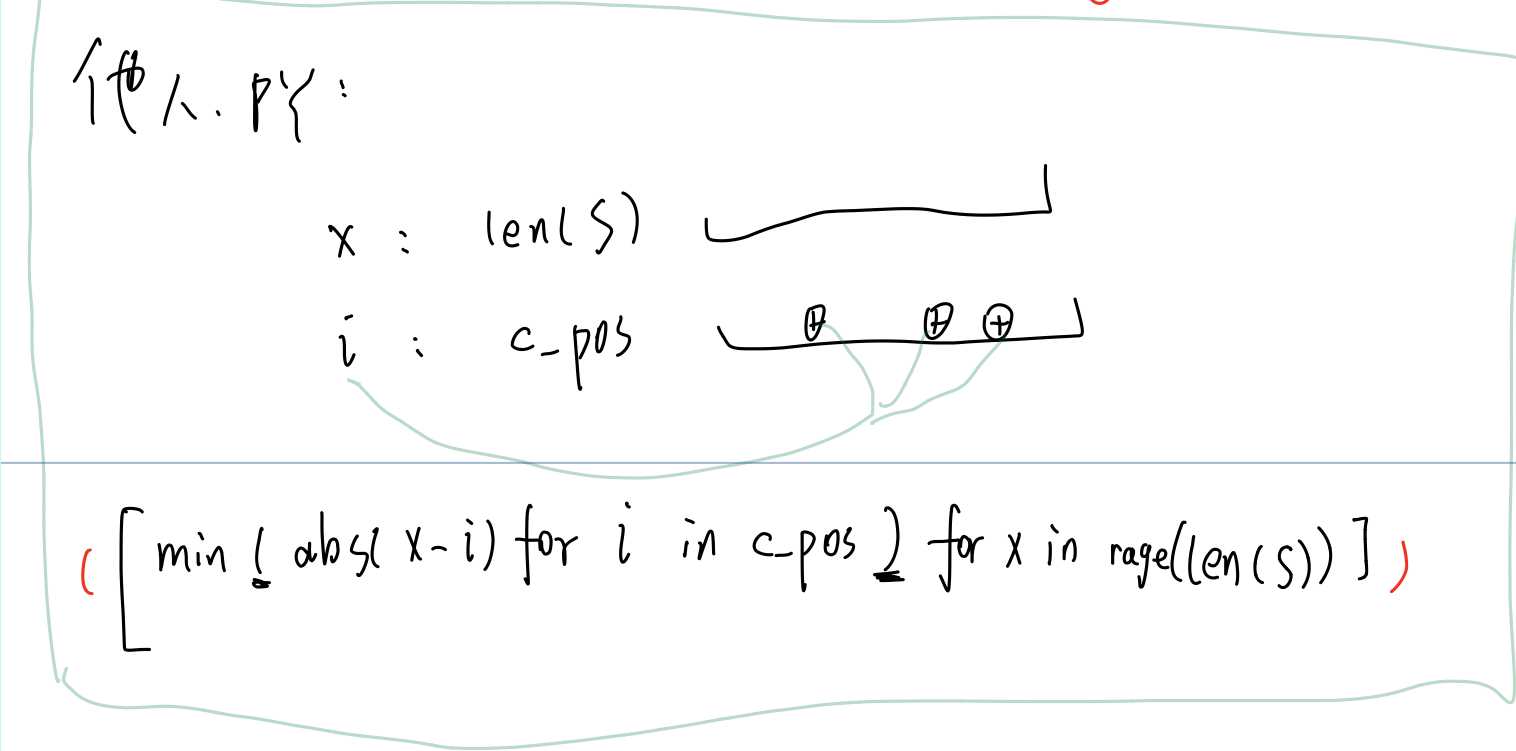 他人.py:
x : len(S)
i : c_pos
([min( abs( x-i) for i in c_pos ) for x in rage(len(S))])